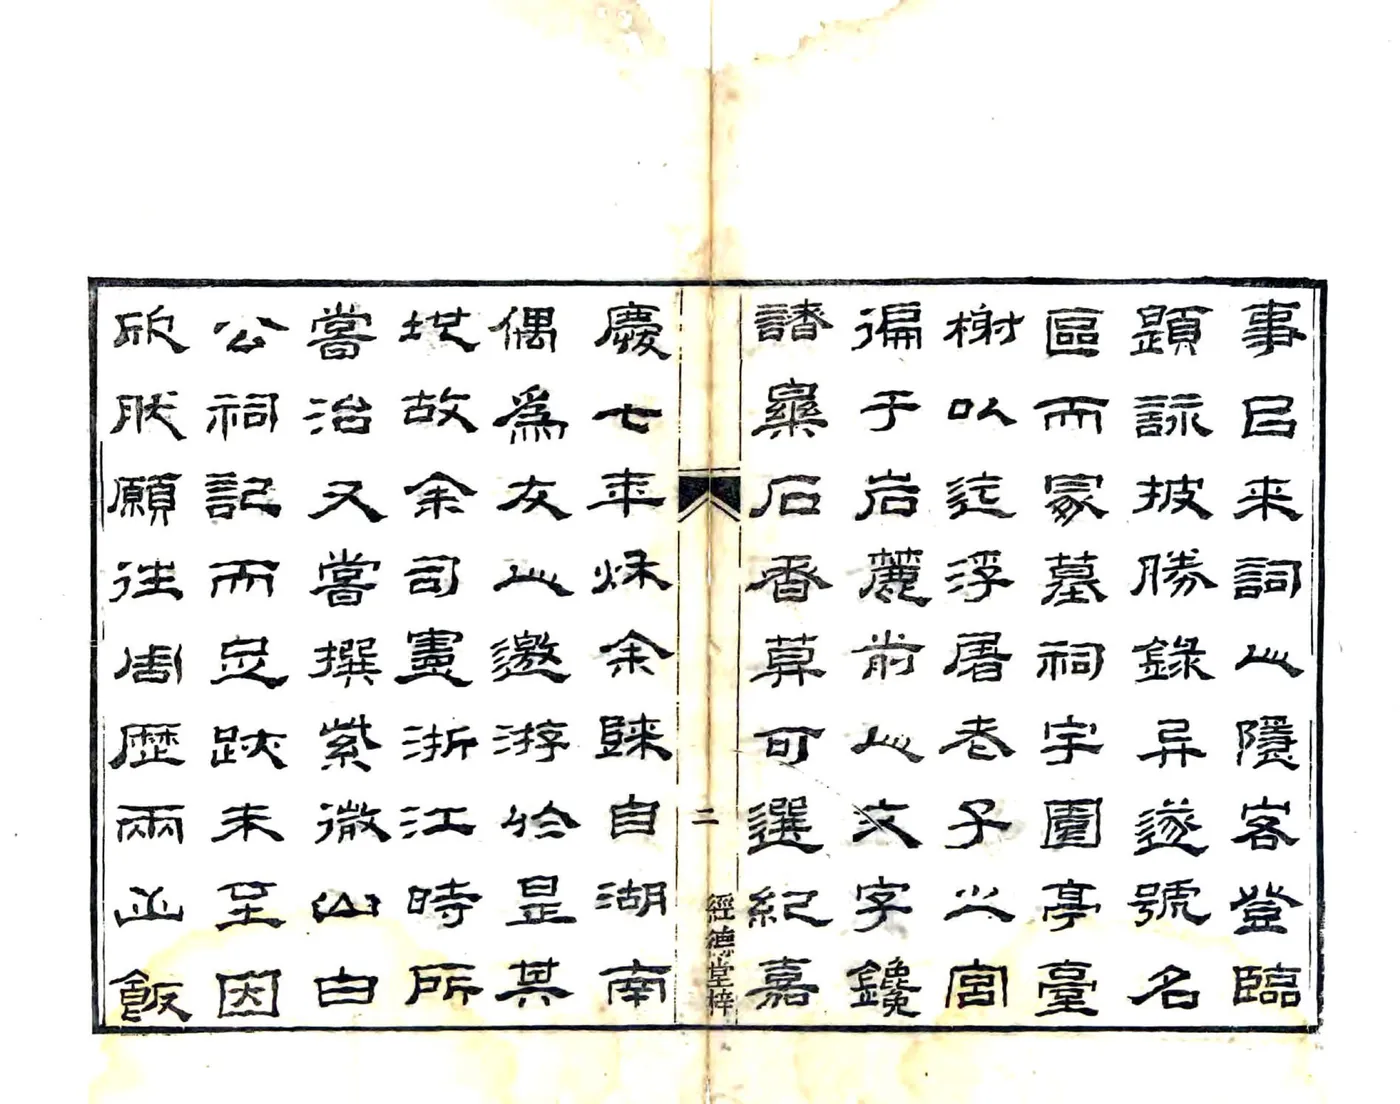 事已来詞人隱客登臨
題詠披勝錄异遂號名
區而冢墓祠宇園亭臺
榭以迄浮屠老子之宮
徧于岩麓前人文字鑱
諸樂石者莫可選紀嘉
二 經德堂梓
慶七年秋余歸自湖南
偶為友人邀游於是其
地故余司憲浙江時所
嘗治又嘗撰紫微山白
公祠記而足跡未至因
欣然願往周歷兩山飯